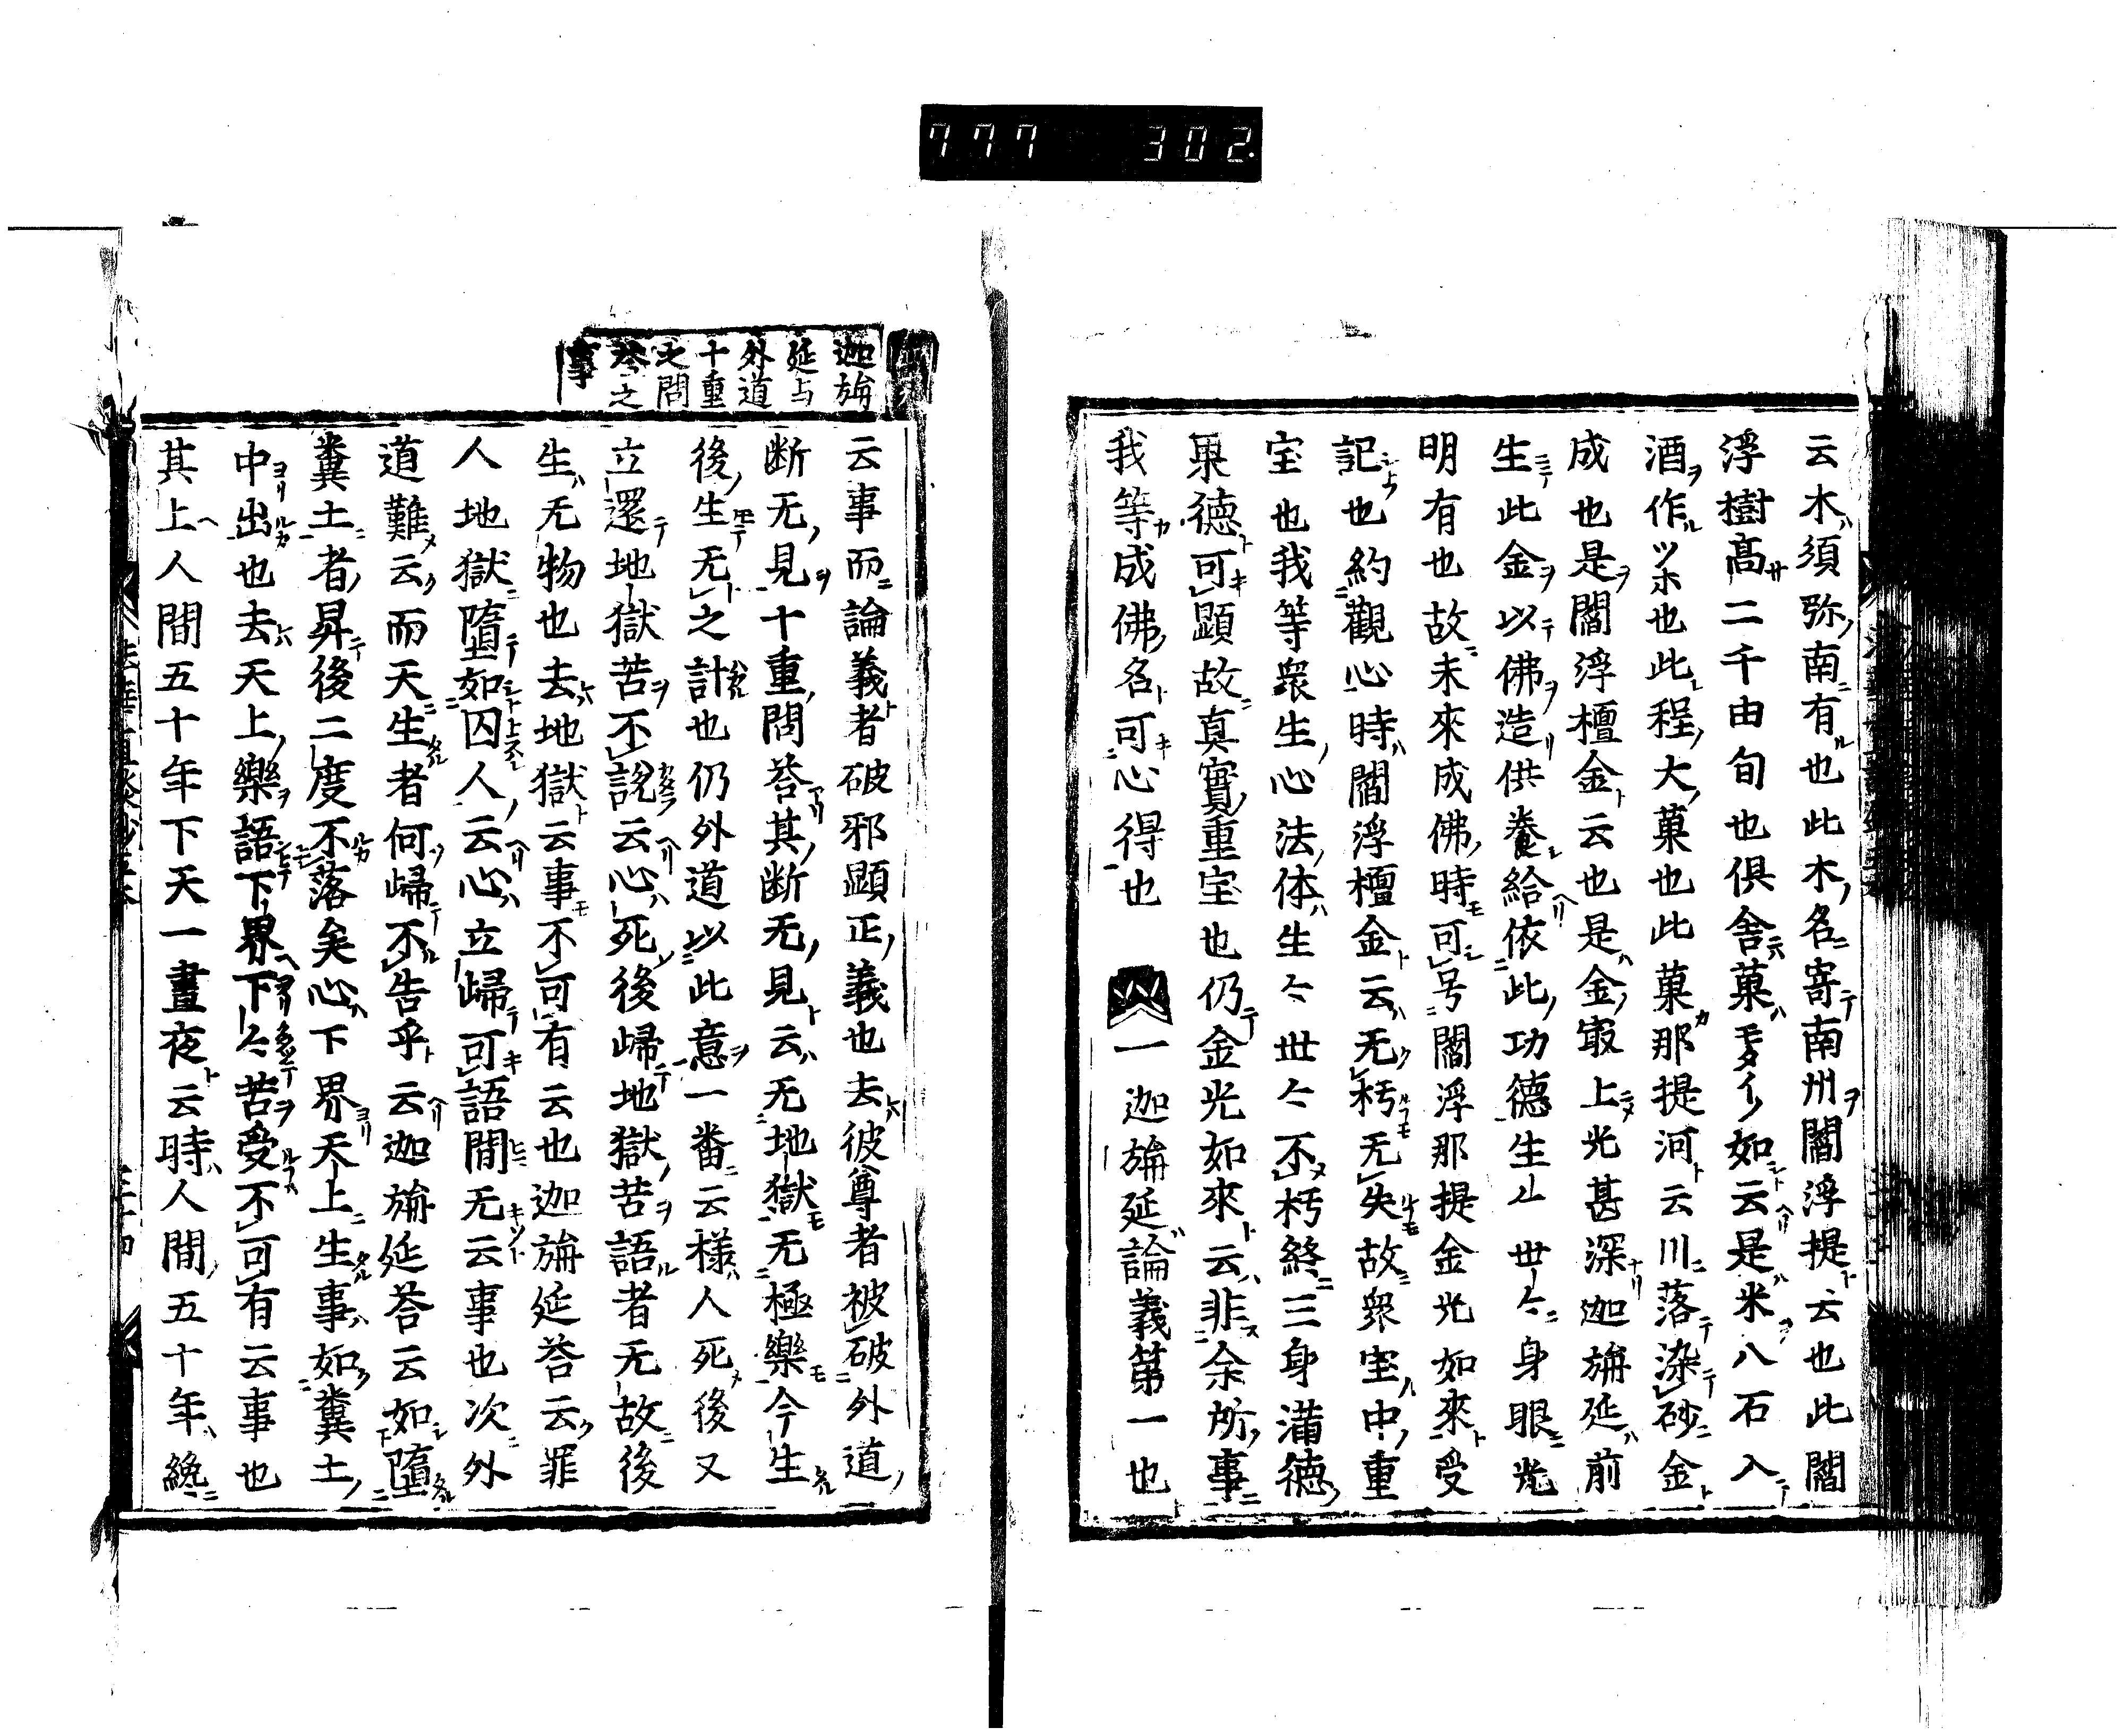 777 302.
云木須弥南有也此木名寄南州閻浮提云也此閻
浮樹髙二千由旬也俱舎菓モタイノ如云是米八石入
酒作ツホ也此程大菓也此菓那提河云川落染砂金
成也是閻浮檀金云也是金冣上光甚深迦旃延前
生此金以佛造供養給依此功德生〻世〻身眼光
明有也故未來成佛時可号閻浮那提金光如來受
記也約觀心時閻浮檀金云无朽无失故衆宝中重
宝也我等衆生心法体生〻世〻不朽終三身滿德
果德可顕故真實重宝也仍金光如來云非余所事
我等成佛名可心得也　一迦旃延論義第一也
迦旃
延与
外道
十重
之問
荅之
事
云事而論義者破邪顕正義也去彼尊者被破外道
断无見十重問荅其断无見云无地獄无極樂今生
後生无之計也仍外道以此意一番云様人死後又
立還地獄苦不説云心死後歸地獄苦語者无故後
生无物也去地獄云事不可有云也迦旃延荅云罪
人地獄墮如囚人云心立歸可語間无云事也次外
道難云而天生者何歸不告乎云迦旃延荅云如墮
糞土者昇後二度不落矣心下界天上生事如糞土
中出也去天上樂語下界下〻苦受不可有云事也
其上人間五十年下天一晝夜云時人間五十年纔